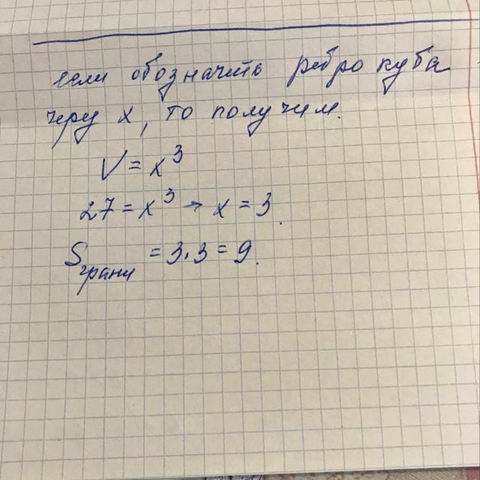 если обозначить ребро куба
через x, то получим.
V = x³
27 = x³ → x = 3.
Sграни = 3·3 = 9.